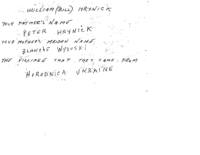 WILLIAM (BILL) HRYNICK
YOUR FATHER'S NAME
PETER HRYNICK
YOUR MOTHER'S MAIDEN NAME
BLANCHE
THE VILLAGE THAT THEY CAME FROM
HORODNICA UKRAINE